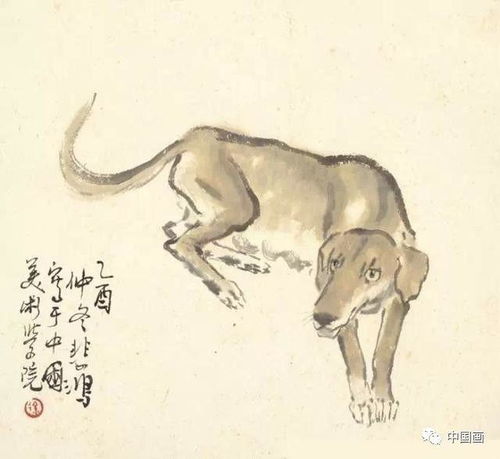 乙酉
仲冬悲鸿
写于中国
美术学院
中国画